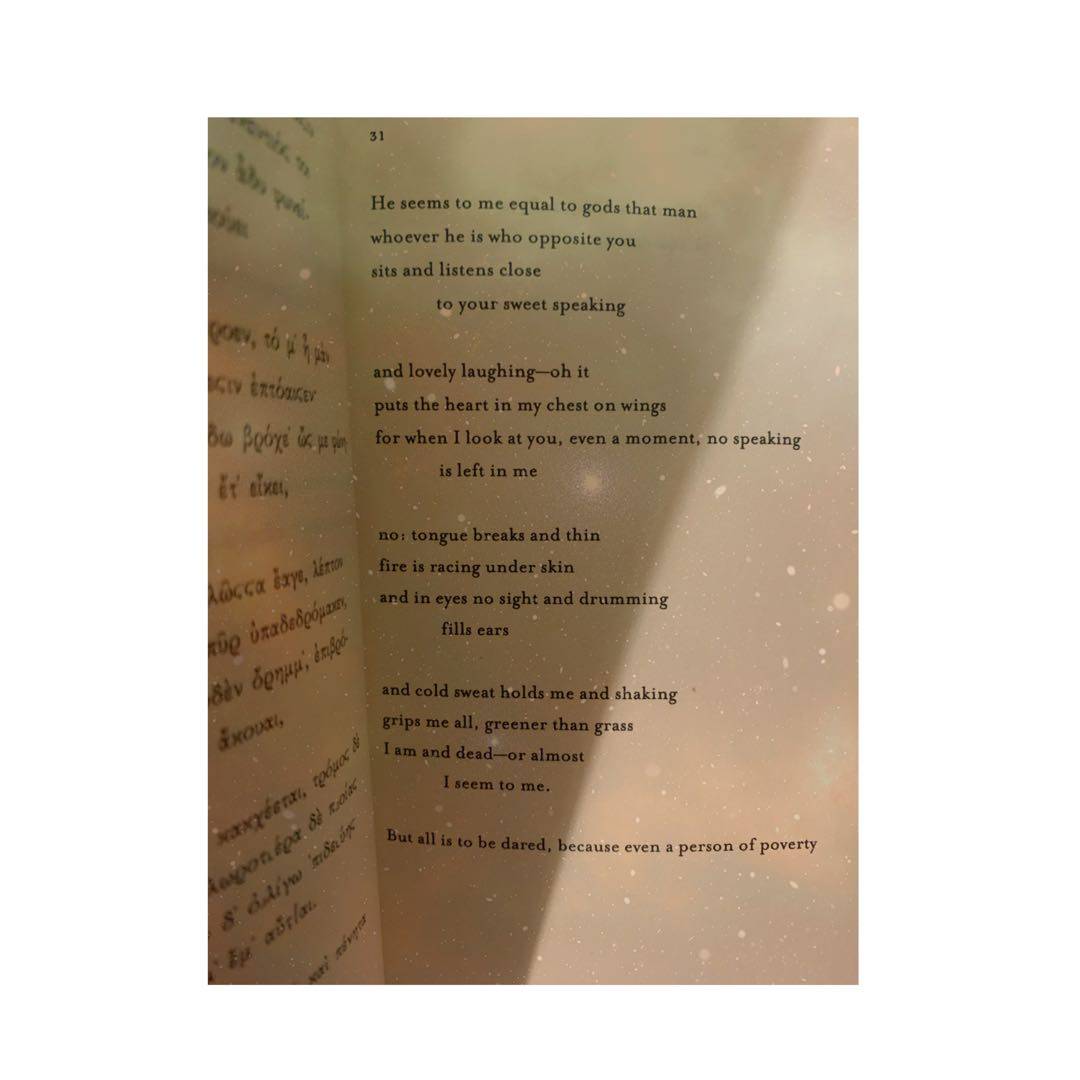 ἐπτόαιϲεν
βρόχε' ὤϲ με
ἔτ' εἴκει,
ἔαγε, λέπτον
πῦρ ὐπαδεδρόμηκεν,
ὄρημμ', ἐπιβρό-
ἄκουαι,
τρόμος δὲ
δὲ ποίας
δ' ὀλίγω 'πιδεύης
ἔμ' αὔται.
καὶ πένητα
31
He seems to me equal to gods that man
whoever he is who opposite you
sits and listens close
to your sweet speaking
and lovely laughing—oh it
puts the heart in my chest on wings
for when I look at you, even a moment, no speaking
is left in me
no: tongue breaks and thin
fire is racing under skin
and in eyes no sight and drumming
fills ears
and cold sweat holds me and shaking
grips me all, greener than grass
I am and dead—or almost
I seem to me.
But all is to be dared, because even a person of poverty